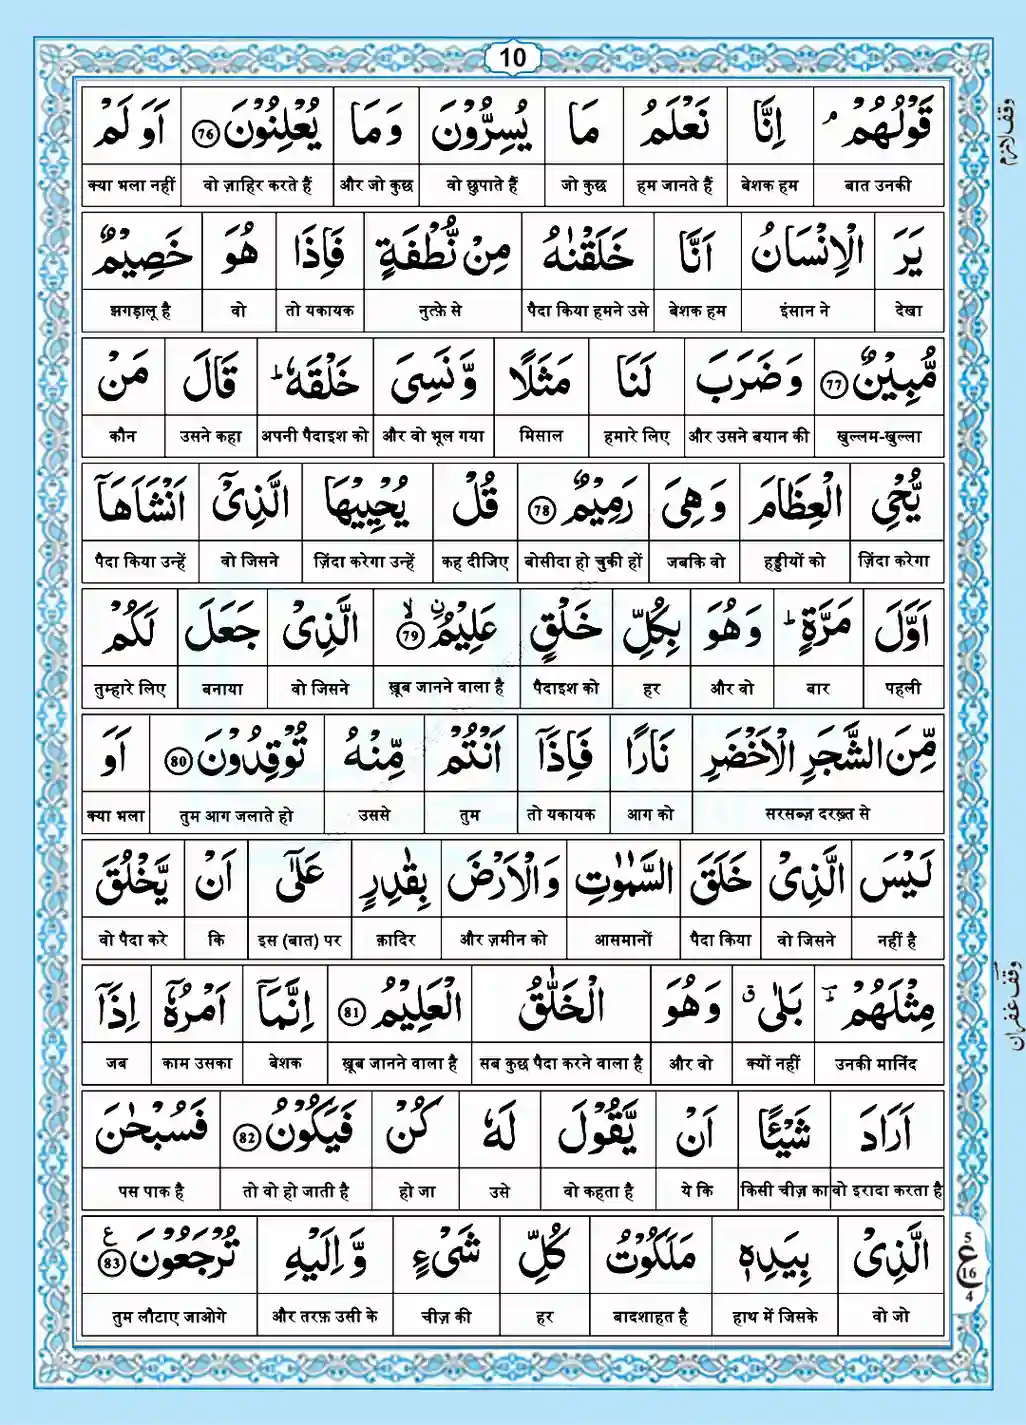 10
قَوْلُهُمْ ۘ اِنَّا نَعْلَمُ مَا يُسِرُّوْنَ وَمَا يُعْلِنُوْنَ 76 اَوَلَمْ
बात उनकी बेशक हम हम जानते हैं जो कुछ वो छुपाते हैं और जो कुछ वो ज़ाहिर करते हैं क्या भला नहीं
يَرَ الْاِنْسَانُ اَنَّا خَلَقْنٰهُ مِنْ نُّطْفَةٍ فَاِذَا هُوَ خَصِيْمٌ
देखा इंसान ने बेशक हम पैदा किया हमने उसे नुत्फ़े से तो यकायक वो झगड़ालू है
مُّبِيْنٌ 77 وَضَرَبَ لَنَا مَثَلًا وَّنَسِىَ خَلْقَهٗ ؕ قَالَ مَنْ
खुल्लम-खुल्ला और उसने बयान की हमारे लिए मिसाल और वो भूल गया अपनी पैदाइश को उसने कहा कौन
يُّحْىِ الْعِظَامَ وَهِىَ رَمِيْمٌ 78 قُلْ يُحْيِيْهَا الَّذِىْٓ اَنْشَاَهَآ
ज़िंदा करेगा हड्डीयों को जबकि वो बोसीदा हो चुकी हों कह दीजिए ज़िंदा करेगा उन्हें वो जिसने पैदा किया उन्हें
اَوَّلَ مَرَّةٍ ؕ وَهُوَ بِكُلِّ خَلْقٍ عَلِيْمُ ۨ ۙ 79 الَّذِىْ جَعَلَ لَكُمْ
पहली बार और वो हर पैदाइश को ख़ूब जानने वाला है वो जिसने बनाया तुम्हारे लिए
مِّنَ الشَّجَرِ الْاَخْضَرِ نَارًا فَاِذَآ اَنْتُمْ مِّنْهُ تُوْقِدُوْنَ 80 اَوَ
सरसब्ज़ दरख़्त से आग को तो यकायक तुम उससे तुम आग जलाते हो क्या भला
لَيْسَ الَّذِىْ خَلَقَ السَّمٰوٰتِ وَالْاَرْضَ بِقٰدِرٍ عَلٰٓى اَنْ يَّخْلُقَ
नहीं है वो जिसने पैदा किया आसमानों और ज़मीन को क़ादिर इस (बात) पर कि वो पैदा करे
مِثْلَهُمْ ؕ بَلٰى ۗ وَهُوَ الْخَلّٰقُ الْعَلِيْمُ 81 اِنَّمَآ اَمْرُهٗٓ اِذَآ
उनकी मानिंद क्यों नहीं और वो सब कुछ पैदा करने वाला है ख़ूब जानने वाला है बेशक काम उसका जब
اَرَادَ شَيْئًا اَنْ يَّقُوْلَ لَهٗ كُنْ فَيَكُوْنُ 82 فَسُبْحٰنَ
वो इरादा करता है किसी चीज़ का ये कि वो कहता है उसे हो जा तो वो हो जाती है पस पाक है
الَّذِىْ بِيَدِهٖ مَلَكُوْتُ كُلِّ شَىْءٍ وَّاِلَيْهِ تُرْجَعُوْنَ 83 ع
वो जो हाथ में जिसके बादशाहत है हर चीज़ की और तरफ़ उसी के तुम लौटाए जाओगे
وقف لازم
وقف غفران
5
ع
16
4